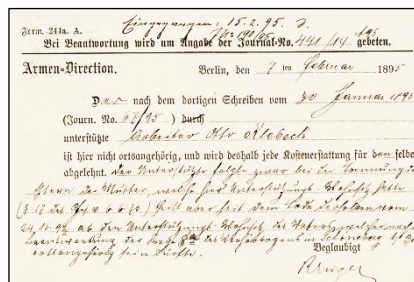 Eingegangen: 15.2.95. J.
Form. 244a. A.
Bei Beantwortung wird um Angabe der Journal-No. 441/14 95 gebeten.
Armen-Direction. Berlin, den 7 ten Februar 1895
Der nach dem dortigen Schreiben vom 30 Januar 1895
(Journ. No. 67/95) durch
unterstützte Arbeiter Otto Klebeck
ist hier nicht ortsangehörig, und wird deshalb jede Kostenerstattung für denselben
abgelehnt. Der Unterstützte folgte zwar bei der Trennung der
Eltern der Mutter, welche hier Unterstützungs-Wohnsitz hatte
(§ 17 des Ges. v. 6.6.70) theilt aber seit dem Tode derselben vom
24.10.92 ab den Unterstützungs-Wohnsitz des Vaters, welcher nach
in Schöneberg
sein dürfte.
Beglaubigt
Krüger